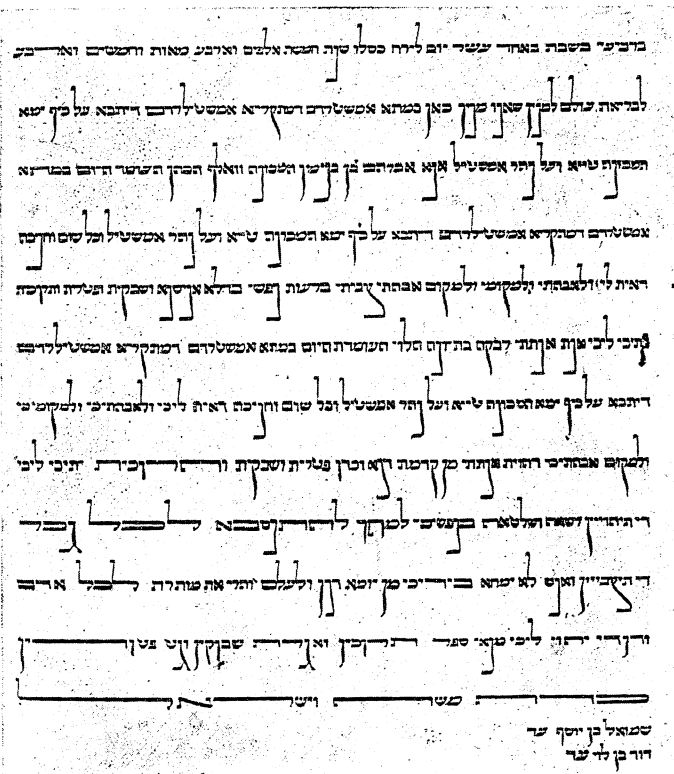 ברביעי בשבת באחד עשר יום לירח כסלו שנת חמשת אלפים וארבע מאות וחמשים וארבע
לבריאת עולם למנין שאנו מנין כאן במתא אמשטלרדם דמתקריא אמשטילרדם דיתבא על כיף ימא
המכונה טייא ועל נהר אמשטיל אנא אברהם בן בנימין המכונה וואלף הכהן העומד היום במתא
אמשטלרדם דמתקריא אמשטילרדם דיתבא על כיף ימא המכונה טייא ועל נהר אמשטיל וכל שום וחניכה
דאית לי ולאבהתי ולמקומי ולמקום אבהתי צביתי ברעות נפשי בדלא אניסנא ושבקית ופטרית ותרוכית
יתיכי ליכי אנת אנתתי רבקה בת יונה הלוי העומדת היום במתא אמשטלרדם דמתקריא אמשטילרדם
דיתבא על כיף ימא המכונה טייא ועל נהר אמשטיל וכל שום וחניכה דאית ליכי ולאבהתיכי ולמקומיכי
ולמקום אבהתיכי דהוית אנתתי מן קדמת דנא וכדן פטרית ושבקית ותרוכית יתיכי ליכי
דיתיהוייין רשאה ושלטאה בנפשיכי למהך להתנסבא לכל גבר
די תיצבייין ואנש לא ימחא בידיכי מן יומא דנן ולעלם והרי את מותרת לכל אדם
ודן די יהוי ליכי מנאי ספר תרוכין ואגרת שבוקין וגט פטורין
כדת משה וישראל
שמואל בן יוסף עד
דוד בן עד